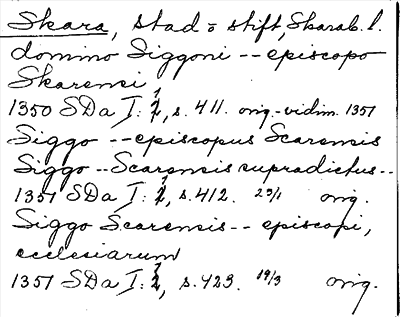 Skara, stad o stift, Skarab. l.
domino Siggoni -- episcopo
Skarensi
1350 SDa I: 2, s. 411. orig.-vidim. 1351
Siggo -- episcopus Scarensis
Siggo -- Scarensis supradictus --
1351 SDa I: 2, s. 412. 23/1 orig.
Siggo Scarensis -- episcopi,
ecclesiarum
1351 SDa I: 2, s. 423. 19/3 orig.